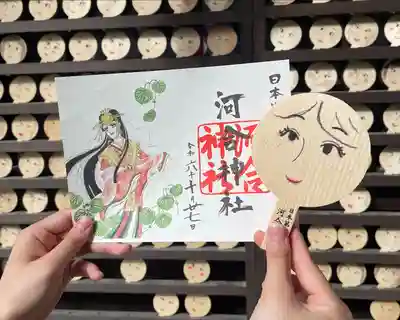 日本
河合神社
河合
神社
令和六年十月廿七日